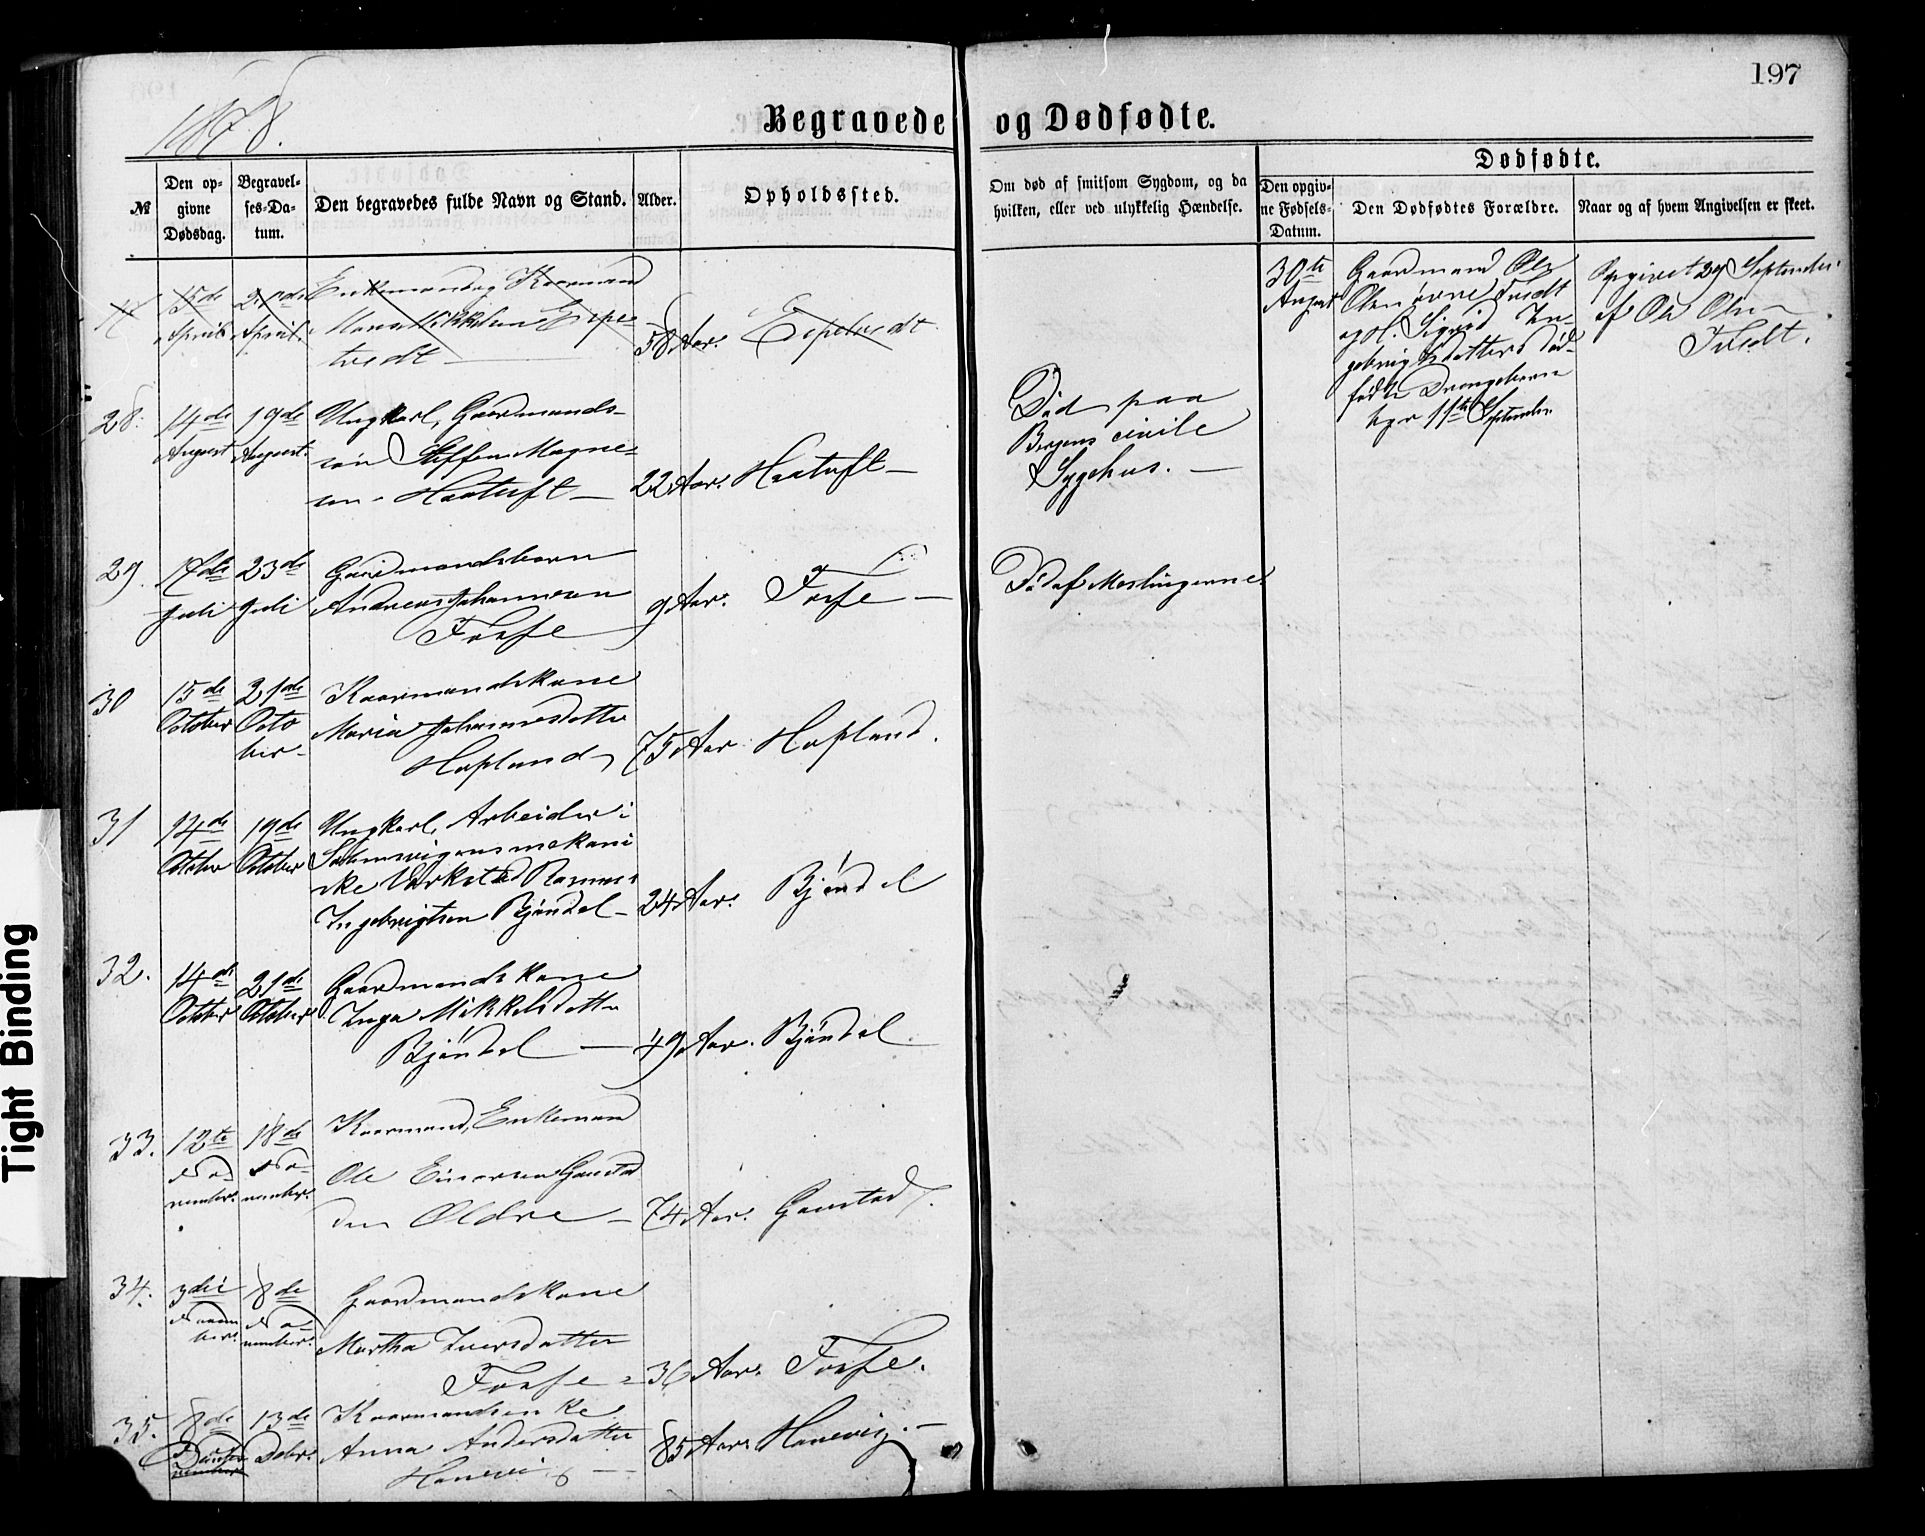 197
1878.
Begravede og Dødfødte.
№
Den opgivne Dødsdag.
Begravelses-Datum.
Den begravedes fulde Navn og Stand.
Alder.
Opholdssted.
Om død af smitsom Sygdom, og da
hvilken, eller ved ulykkelig Hændelse.
Dødfødte.
Den opgivne Fødsels-Datum.
Den Dødfødtes Forældre.
Naar og af hvem Angivelsen er skeet.
15de April
April
Enkemand og Kaarmand
Hans Mikkelsen Espe-
tvedt
58 Aar.
Espetvedt
30te August
Gaardmand Ole
Olsen Tvedt
og H. Sigrid In-
gebrigtsdatters død-
fødte Drengebarn
11te September
Opgivet 29 September
af Ole Olsen
Tvedt.
28.
14de August
19de August
Ungkarl, Gaardmands-
søn Steffen Magne-
sen Haatuft
22 Aar.
Haatuft
Død paa
Bergens civile
Sygehus.
29.
17de Juli
23de Juli
Gaardmandsbarn
Andreas Johannesen
Fosse
9 Aar.
Fosse
Død af Meslingerne.
30
15de October
21de October
Kaarmandskone
Maria Johannesdatter
Hopland
75 Aar
Hopland.
31
14de October
19de October
Ungkarl, Arbeider i
Solemsvigens mekani
ske Værksted Rasmus
Ingebrigtsen Bjøndal
24 Aar.
Bjøndal
32.
14de October
21de October
Gaardmandskone
Inga Mikkelsdatter
Bjøndal
49 Aar.
Bjøndal
33.
12te November.
18de November.
Kaarmand, Enkemand
Ole Einarsen Gaustad
den Ældre
74 Aar.
Gaustad
34.
3die November.
8de November.
Gaardmandskone
Martha Iversdatter
Fosse
36 Aar.
Fosse.
35.
8de
13de Decbr.
Kaarmandsenke
Anna Andersdatter
Hanevig
85 Aar.
Hanevig.
Tight Binding